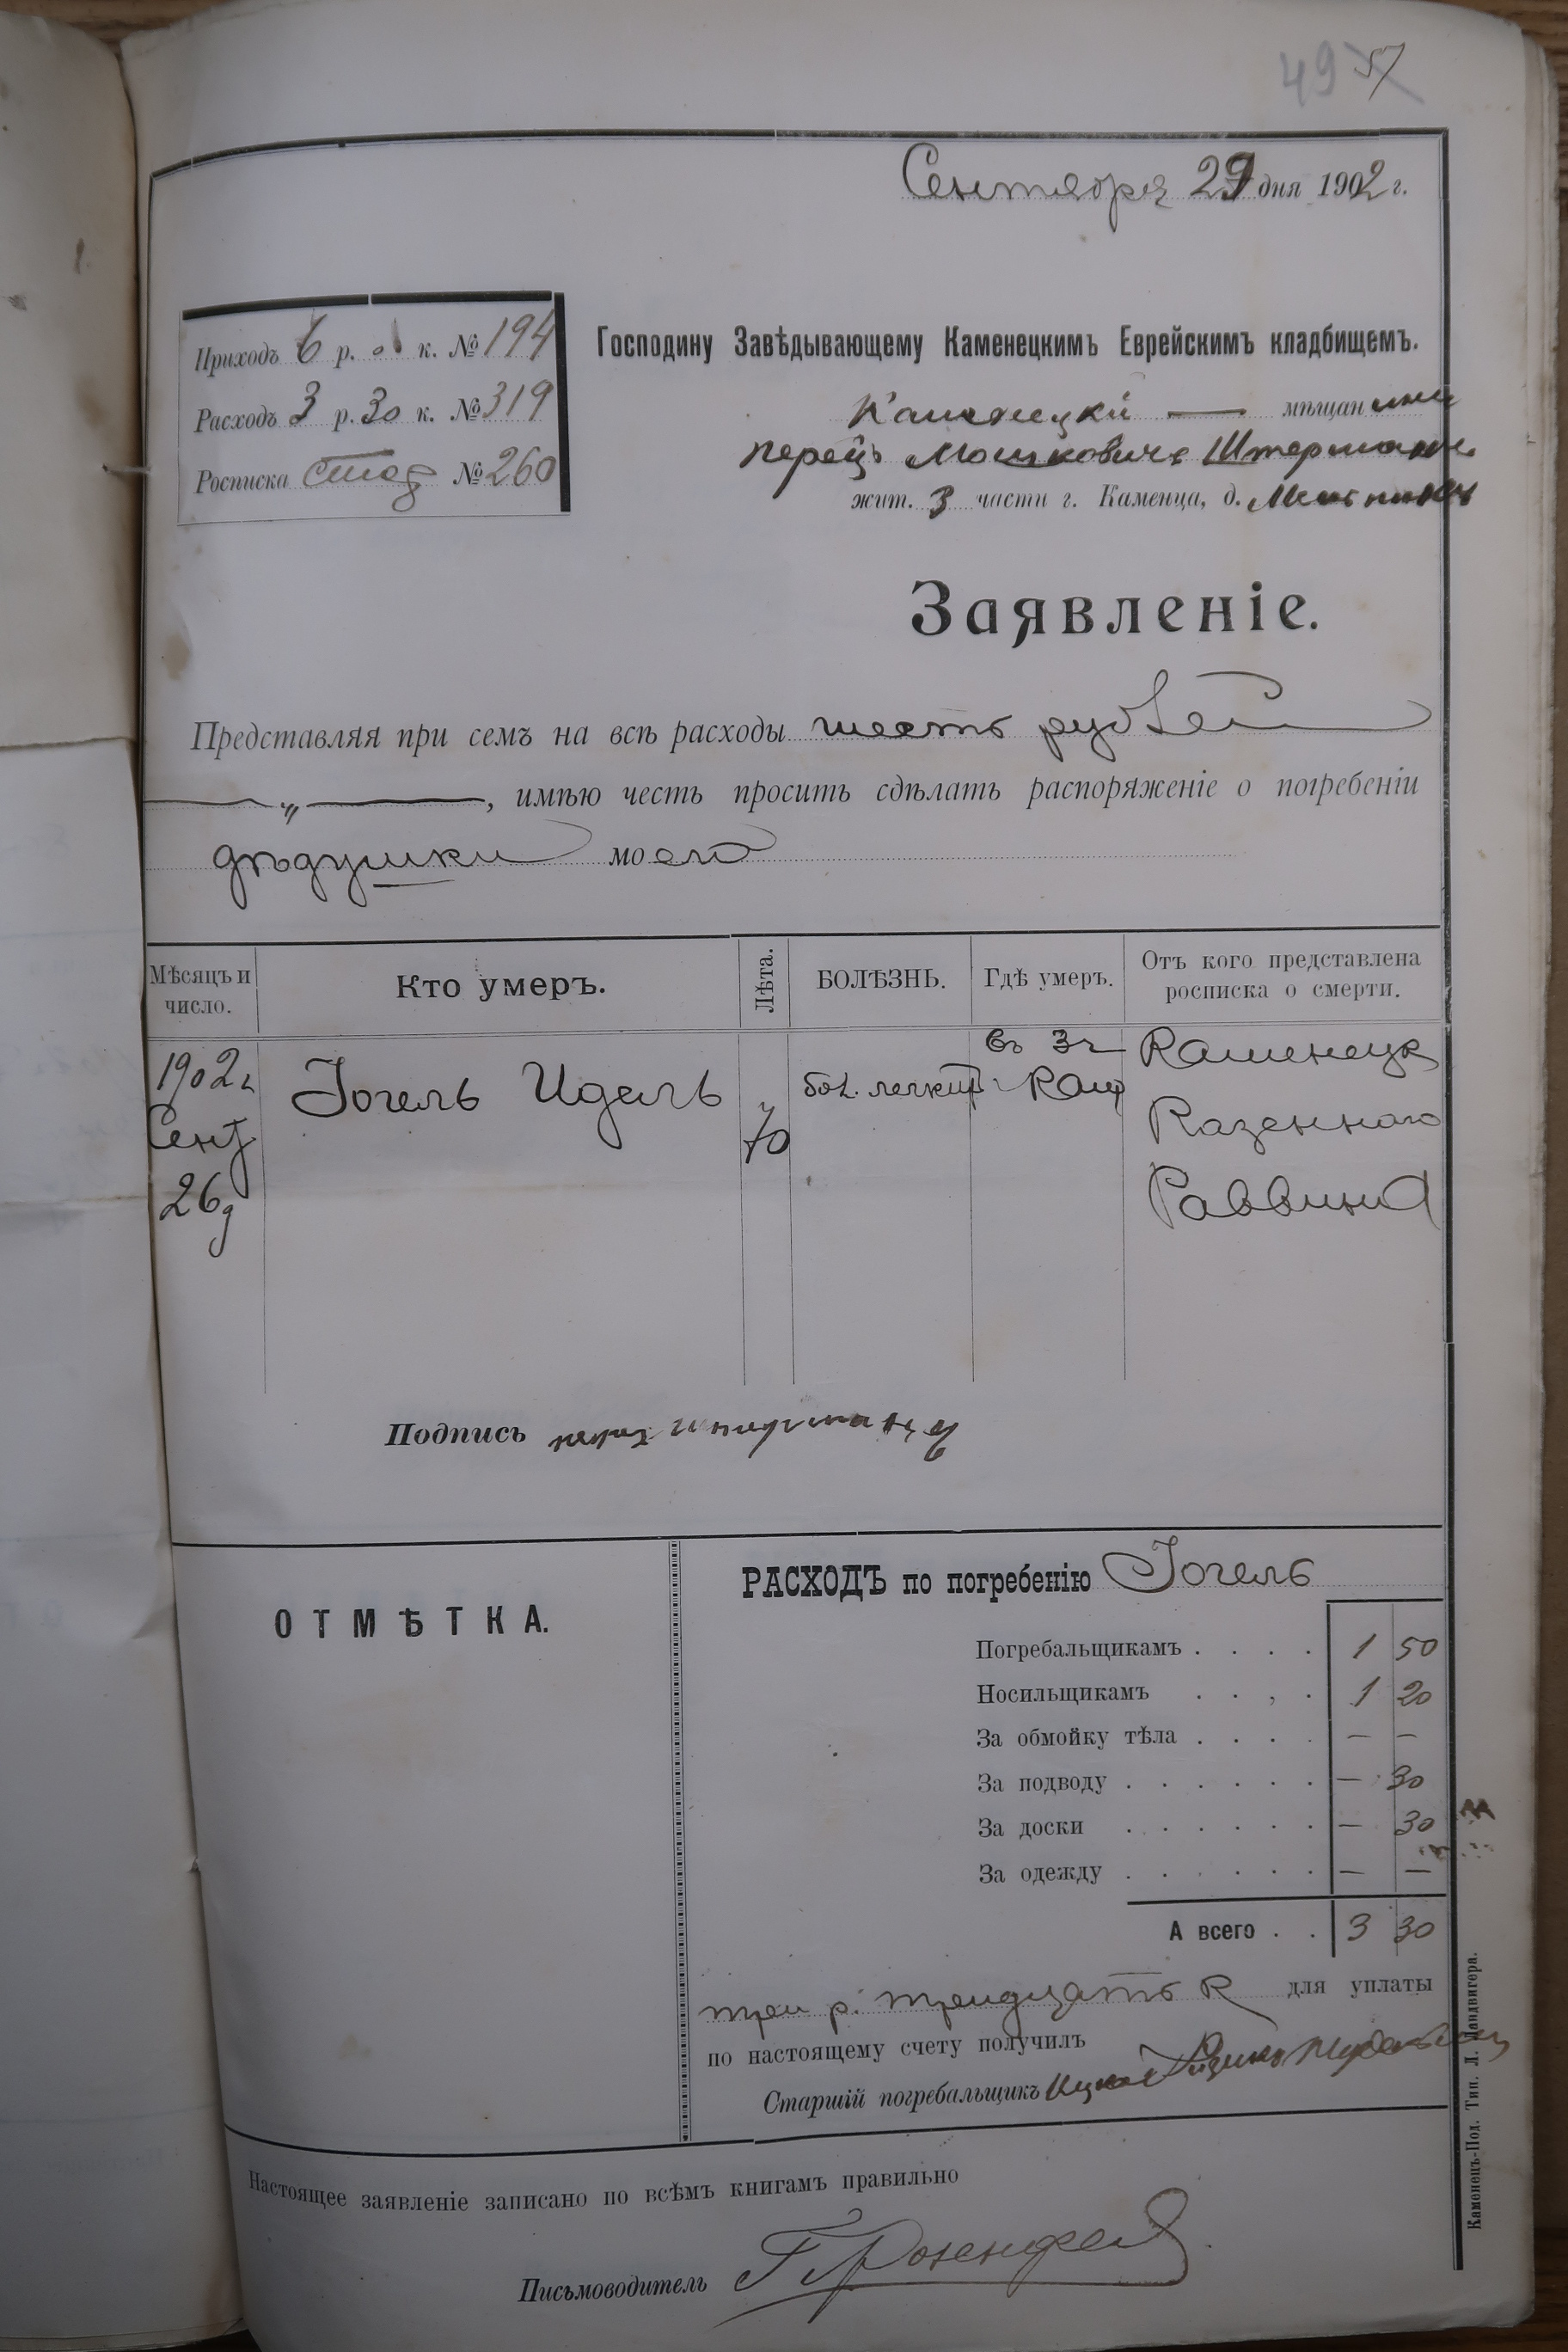 49 57
Сентября 29 дня 1902 г.
Приходъ 6 р. к. № 194
Расходъ 3 р. 30 к. № 319
Росписка № 260
Господину Завѣдывающему Каменецкимъ Еврейскимъ кладбищемъ.
Каменецкій — мѣщанинъ
Перецъ Мошковичъ Штерманъ
жит. 3 части г. Каменца, д.
Заявленіе.
Представляя при семъ на всѣ расходы шесть рублей
— „ —, имѣю честь просить сдѣлать распоряженіе о погребеніи
дѣдушки моего
Мѣсяцъ и число. Кто умеръ. Лѣта. БОЛѢЗНЬ. Гдѣ умеръ. Отъ кого представлена росписка о смерти.
1902 г Сент 26 д
Гогель Идель
70
бол. легкихъ
въ 3 ч г. Кам
Каменецк Казеннаго Раввина
Подпись
ОТМѢТКА.
РАСХОДЪ по погребенію Гогель
Погребальщикамъ . . . . 1 50
Носильщикамъ . . , . 1 20
За обмойку тѣла . . . . — —
За подводу . . . . . . — 30
За доски . . . . . . — 30
За одежду . . . . . . — —
А всего . . 3 30
три р. тридцать к для уплаты
по настоящему счету получилъ
Старшій погребальщикъ
Настоящее заявленіе записано по всѣмъ книгамъ правильно
Письмоводитель Г Розенфельд
Каменецъ-Под. Тип. Л. Ландвигера.